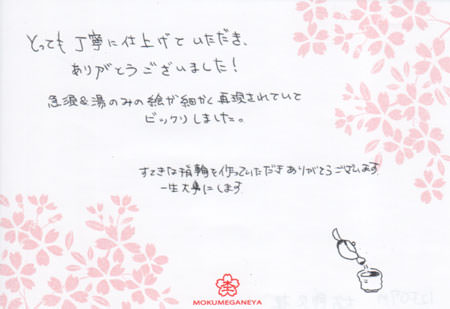 とっても丁寧に仕上げていただき、
ありがとうございました！
急須&湯のみの絵が細かく再現されていて
ビックリしました。
すてきな指輪を作っていただきありがとうございます
一生大事にします
MOKUMEGANEYA